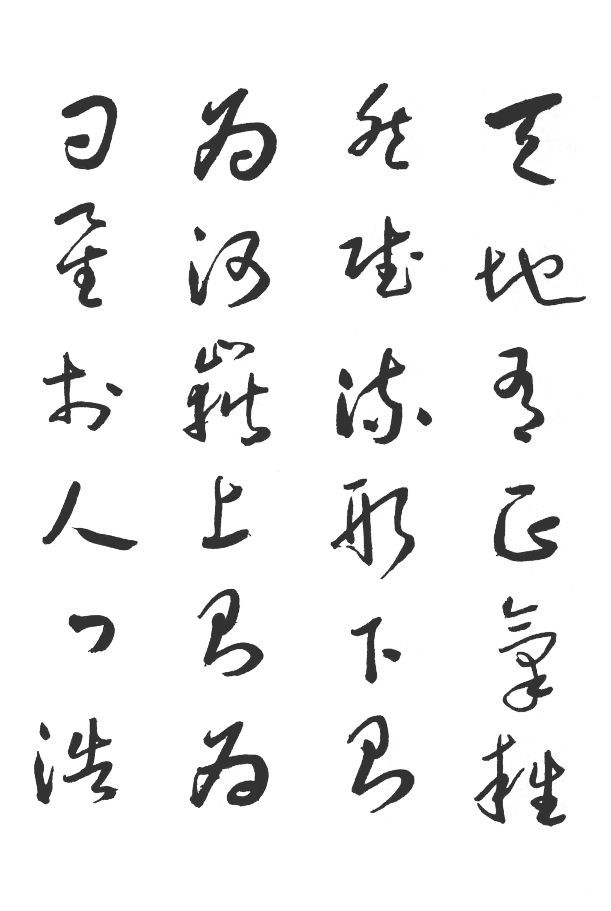 天地有正氣雜
然賦流形下則
為河嶽上則為
日星於人曰浩